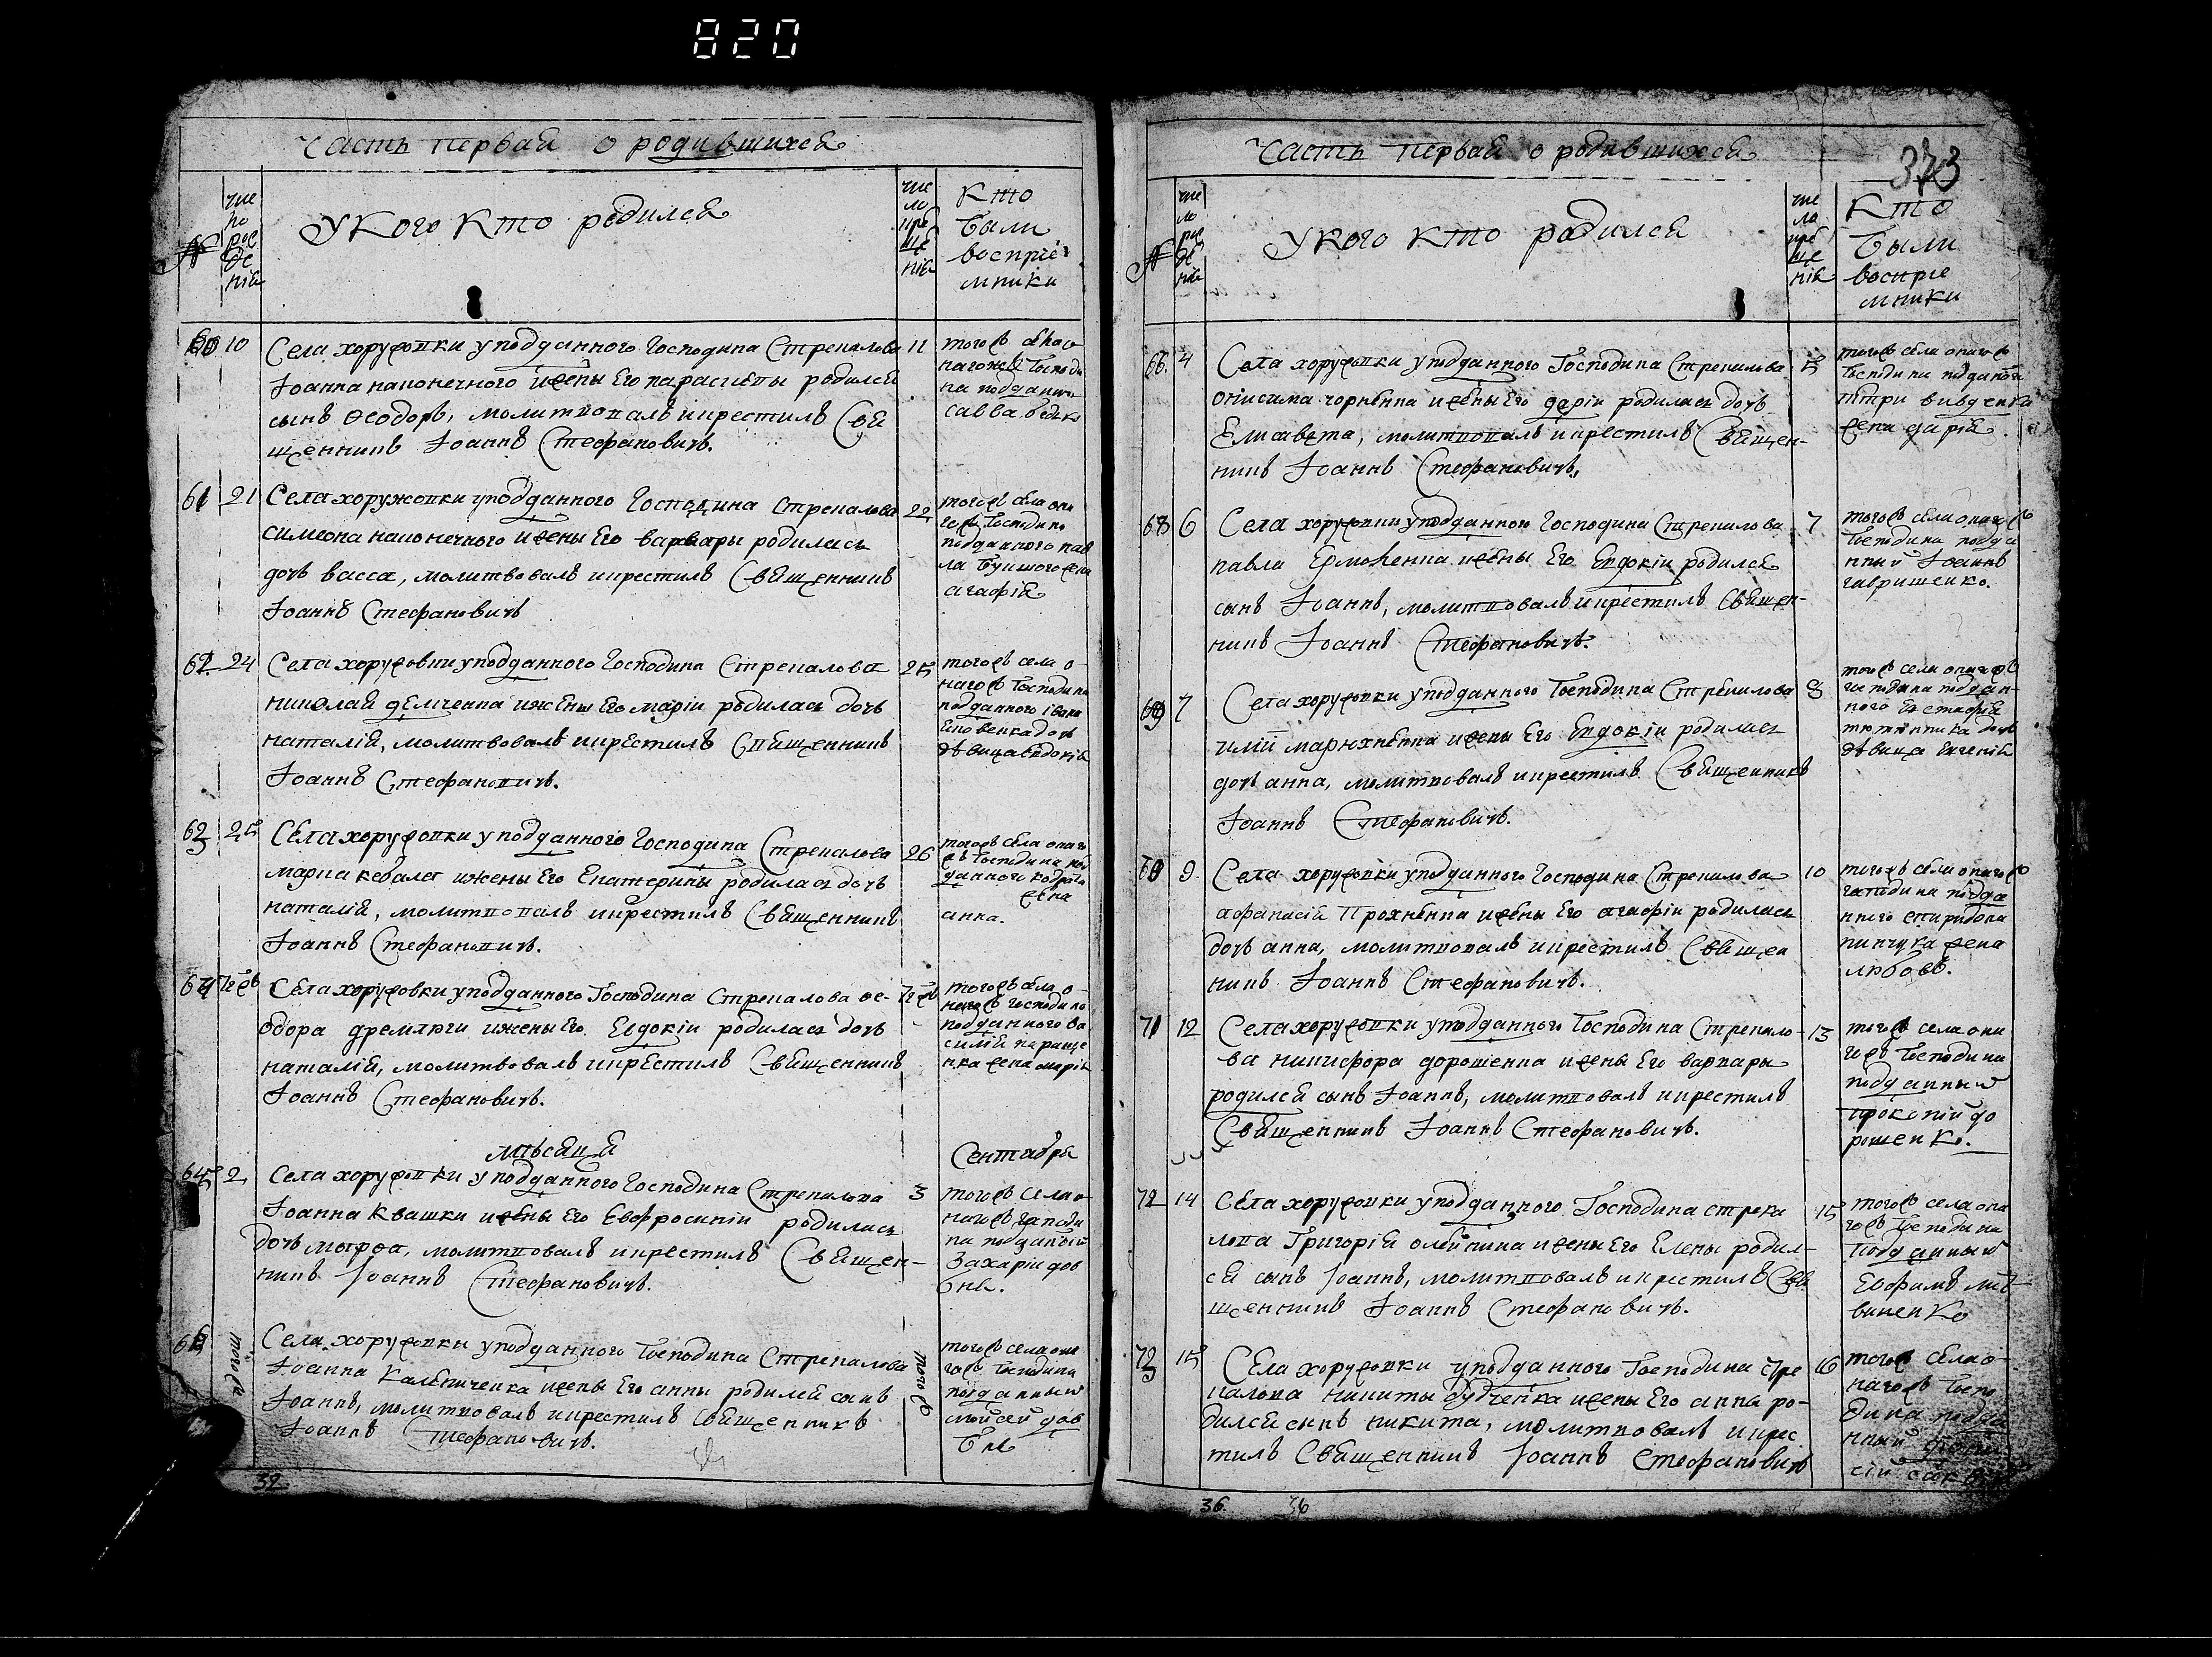 820
Часть первая о родившихся
№
числo рождения
У кого кто родился
число крещения
кто были восприемники
60 10 Села хоружовки у подданного Господина Стрекалова 11
Іоанна наконечного и жены Его параскевы родился
сынъ Ѳеодоръ, молитвовалъ и крестилъ Свя
щенникъ Іоаннъ Стефановичъ.
61 21 Села хоружовки у подданного Господина Стрекалова 22
симеона наконечного и жены Его варвары родилась
дочь васса, молитвовалъ и крестилъ Священникъ
Іоаннъ Стефановичъ
того жъ села она
го жъ Господина
подданного пав
агафія
62. 24 Села хоружовки у подданного Господина Стрекалова 25
николая демченка и жены Его маріи родилась дочь
наталія, молитвовалъ и крестилъ Священникъ
Іоаннъ Стефановичъ.
того жъ села о-
наго жъ Господина
подданного івана
дѣвица евдокія
63 25 Села хоружовки у подданного Господина Стрекалова 26
марка и жены Его Екатерины родилась дочь
наталія, молитвовалъ и крестилъ Священникъ
Іоаннъ Стефановичъ.
того жъ села онаго
жъ Господина под
данного
жена
анна.
64 Села хоружовки у подданного Господина Стрекалова ѳе-
одора дремлюги и жены Его Евдокіи родилась дочь
наталія, молитвовалъ и крестилъ Священникъ
Іоаннъ Стефановичъ.
того жъ села о-
наго жъ Господина
подданного ва
силія параще
нка жена марія
мѣсяца Сентабра
65 2 Села хоружовки у подданного Господина Стрекалова 3
Іоанна Квашки и жены Его Евфросиніи родилась
дочь марѳа, молитвовалъ и крестилъ Священ-
никъ Іоаннъ Стефановичъ.
того жъ села о-
наго жъ господи
на подданый
Захарій дов
бня.
66 того ж Села хоружовки у подданного Господина Стрекалова того ж
Іоанна Калениченка и жены Его анны родился сынъ
Іоаннъ, молитвовалъ и крестилъ Священникъ
Іоаннъ Стефановичъ.
того жъ села она
го жъ Господина
подданный
мойсей дов
бня
32
Часть первая о родившихся
373
№
число рождения
У кого кто родился
число крещения
кто были восприемники
4 Села хоружовки у подданного Господина Стрекалова 5
онисима чорненка и жены Его даріи родилась дочь
Елисавета, молитвовалъ и крестилъ Священ-
никъ Іоаннъ Стефановичъ.
того жъ села онаго жъ
Господина подданого
жена дарія.
68 6 Села хоружовки у подданного Господина Стрекалова 7
павла Ермоленка и жены Его Евдокіи родился
сынъ Іоаннъ, молитвовалъ и крестилъ Священ-
никъ Іоаннъ Стефановичъ.
того жъ села онаго жъ
Господина подда
нный Іоаннъ
гавришенко.
69 7 Села хоружовки у подданного Господина Стрекалова 8
иліи марюхненка и жены Его Евдокіи родилась
дочь анна, молитвовалъ и крестилъ Священникъ
Іоаннъ Стефановичъ.
того жъ села онаго жъ
господина поддан-
ного Евстафія
тютюнника дочь
дѣвица Евгенія
70 9 Села хоружовки у подданного Господина Стрекалова 10
афанасія Прохненка и жены Его агафіи родилась
дочь анна, молитвовалъ и крестилъ Священ
никъ Іоаннъ Стефановичъ.
того жъ села онаго жъ
господина подда
нного спиридона
пинчука жена
любовъ.
71 12 Села хоружовки у подданного Господина Стрекало- 13
ва никифора дорошенка и жены Его варвары
родился сынъ Іоаннъ, молитвовалъ и крестилъ
Священникъ Іоаннъ Стефановичъ.
того жъ села она
го жъ Господина
подданный
прокопій до
рошенко.
72 14 Села хоружовки у подданного Господина Стрека 15
лова Григорія олейника и жены Его Елены родил-
ся сынъ Іоаннъ, молитвовалъ и крестилъ Свя
щенникъ Іоаннъ Стефановичъ.
того жъ села она
го жъ Господина
подданный
Евфимъ лит
виненко
73 15 Села хоружовки у подданного Господина Стре 16
калова никиты дудченка и жены Его анна ро-
дился сынъ никита, молитвовалъ и крес
тилъ Священникъ Іоаннъ Стефановичъ
того жъ села о-
наго жъ Госпо
дина подда
нный
36. 36